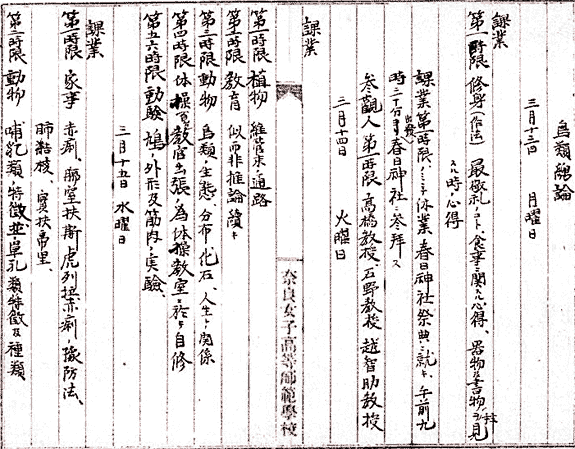 鳥類総論
三月十三日　月曜日
課業
第一時限　修身（作法）　最敬礼ノコト、食事ニ関スル心得、器物及書物ヲ見
ル時ノ心得
課業第一時限ノミニテ休業春日神社祭典ニ就キ、午前九
時三十分出発春日神社ニ参拝ス
参観人　第一時限、高橋教授、石野教授、越智助教授
三月十四日　火曜日
課業
第一時限　植物　維管束ノ通路
第二時限　教育　似而非推論ノ續キ
第三時限　動物　鳥類ノ生態、分布、化石、人生トノ関係
第四時限　体操　教官出張ノ為体操教室ニ於テ自修
第五六時限　動験　鳩ノ外形及筋肉ノ実験、
三月十五日　水曜日
課業
第一時限　家事　赤痢、腸窒扶斯、虎列拉赤痢ノ豫防法、
肺結核、實扶帝里、
第二時限　動物　哺乳類ノ特徴、並単孔類特徴及種類
奈良女子高等師範學校